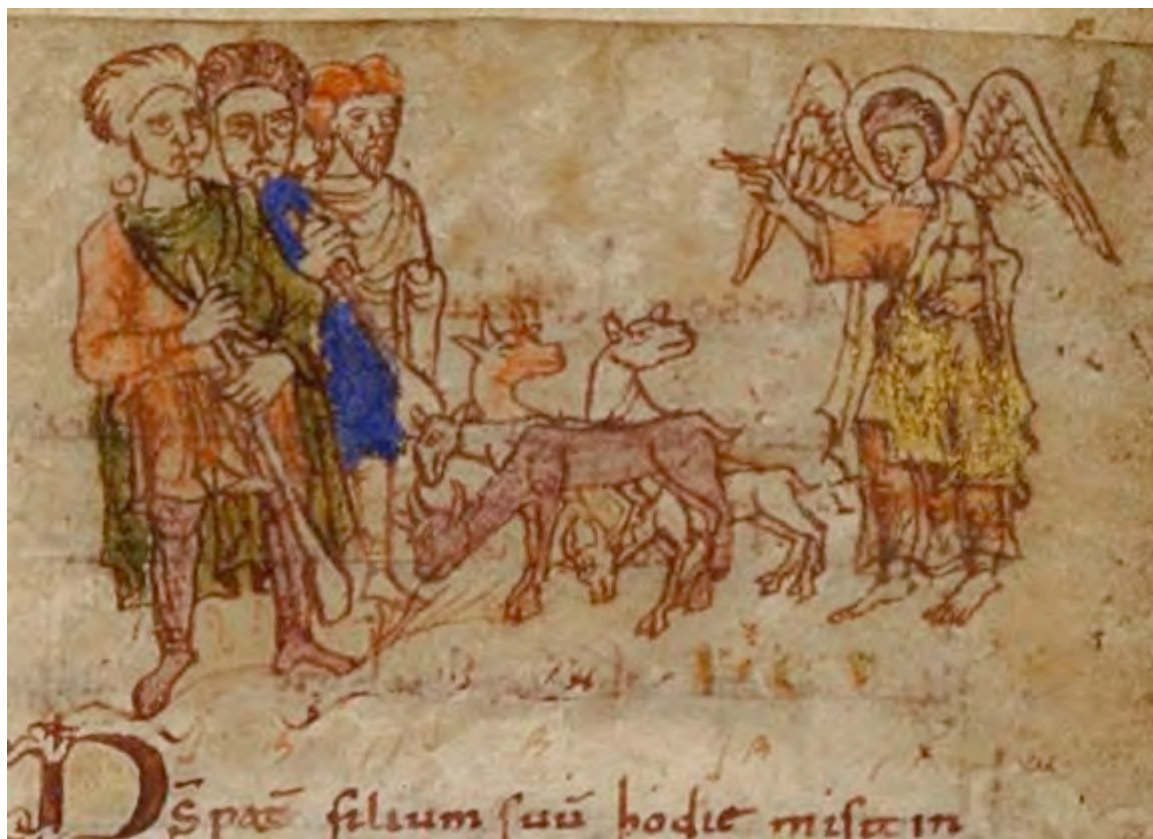 A
Ds̄ pat̄ filium suū hodie misit in